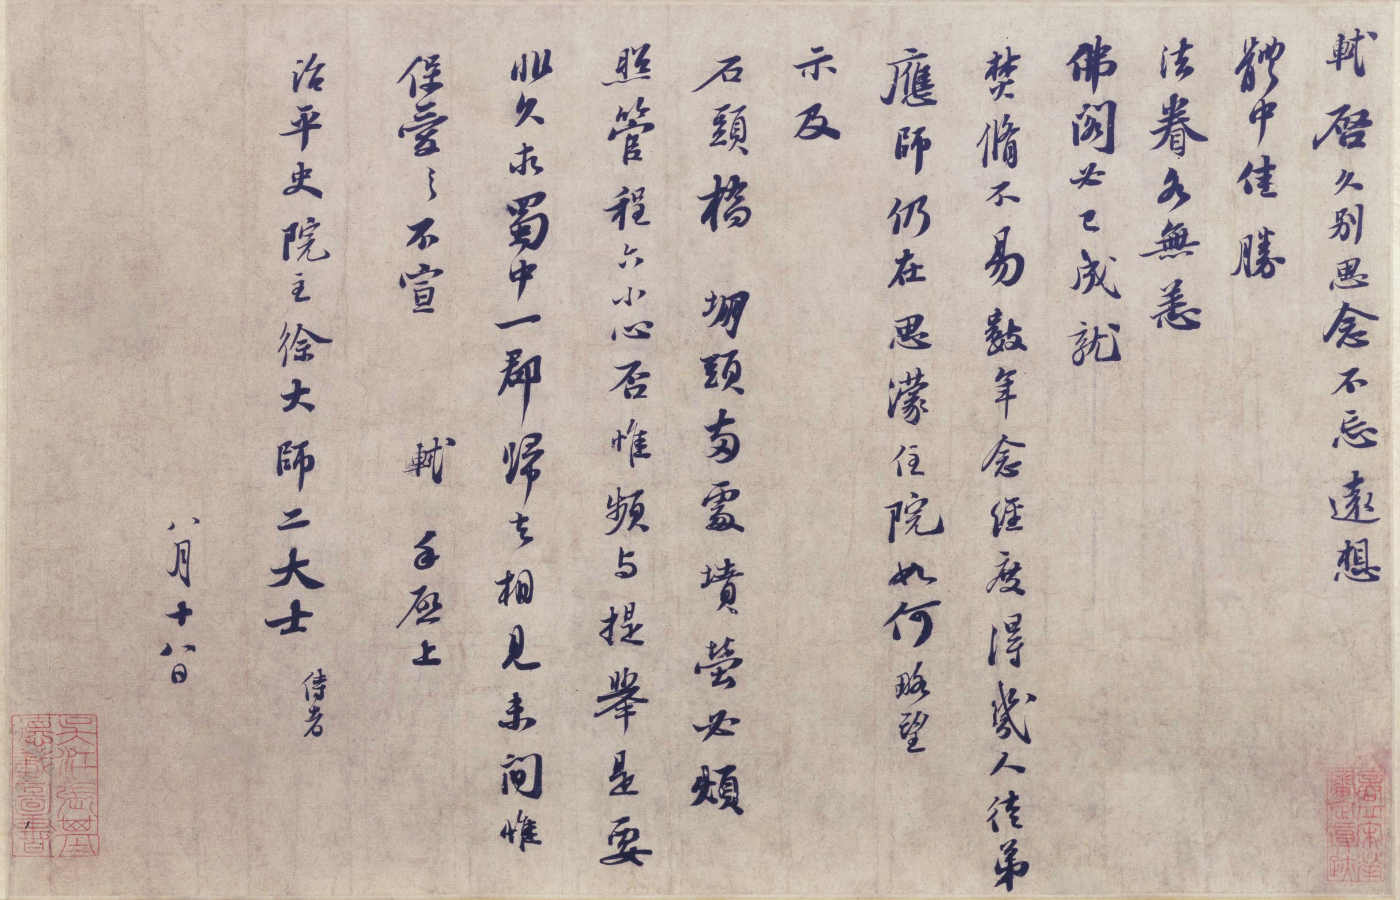 軾啓久別思念不忘遠想
體中佳勝
法眷各無恙
佛閣必已成就
焚脩不易數年念經度得幾人徒弟
應師仍在思濛住院如何略望
示及
石頭橋堋頭兩處墳塋必煩
照管程六小心否惟頻与提舉是要
非久求蜀中一郡歸去相見未間惟
保愛々不宣 軾手啓上
治平史院主徐大師二大士侍者
八月十八日